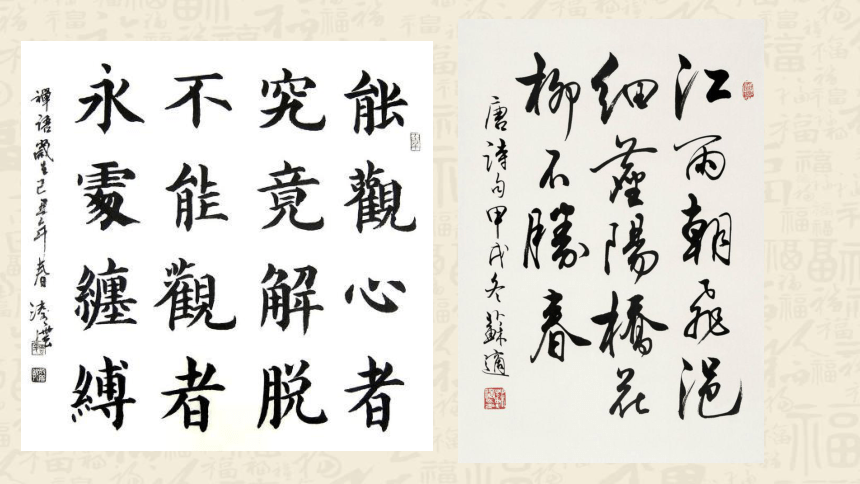 能觀心者
究竟解脱
不能觀者
永處纏縛
禪語歲在己丑年春
江雨朝飛浥
細塵陽橋花
柳不勝春
唐詩句甲戌冬蘇適